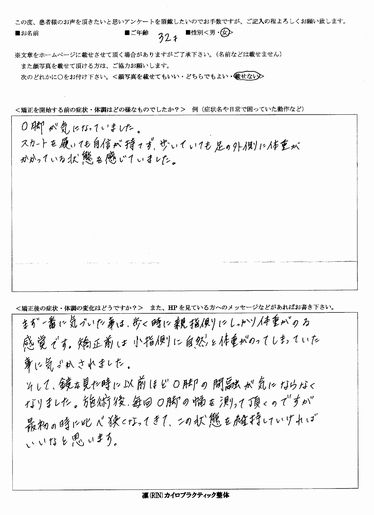 この度、患者様のお声を頂きたいと思いアンケートを頂戴したいのでお手数ですが、ご記入の程よろしくお願い致します。
■お名前 ■ご年齢 32才 ■性別<男・女>
※文章をホームページに載せさせて頂く場合がありますがご了承下さい。(名前などは載せません)
また顔写真を載せて頂ける方は、ご協力お願いします。
次のどれかに○をお付け下さい。<顔写真を載せてもいい・どちらでもよい・載せない>
<矯正を開始する前の症状・体調はどの様なものでしたか?> 例(症状名や日常で困っていた動作など)
O脚が気になっていました。
スカートを履いても自信が持てず、歩いていても足の外側に体重が
かかっている状態を感じていました。
<矯正後の症状・体調の変化はどうですか?> また、HPを見ている方へのメッセージなどがあればお書き下さい。
まず一番に気づいた事は、歩く時に親指側にしっかり体重がのる
感覚です。矯正前は小指側に自然と体重がのってしまっていた
事に気づかされました。
そして、鏡を見た時に以前ほどO脚の間隔が気にならなく
なりました。施術後、毎回O脚の幅を測って頂くのですが
最初の時に比べ狭くなってきて、この状態を維持していければ
いいなと思います。
凛(RIN)カイロプラクティック整体